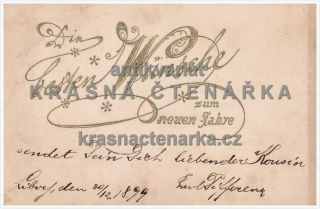 Die
besten Wünsche
antikvariát
KRÁSNÁ ČTENÁŘKA
zum
neuen Jahre
krasnactenarka.cz
sendet Dein Dich liebender Kousin
den 30/12 1899